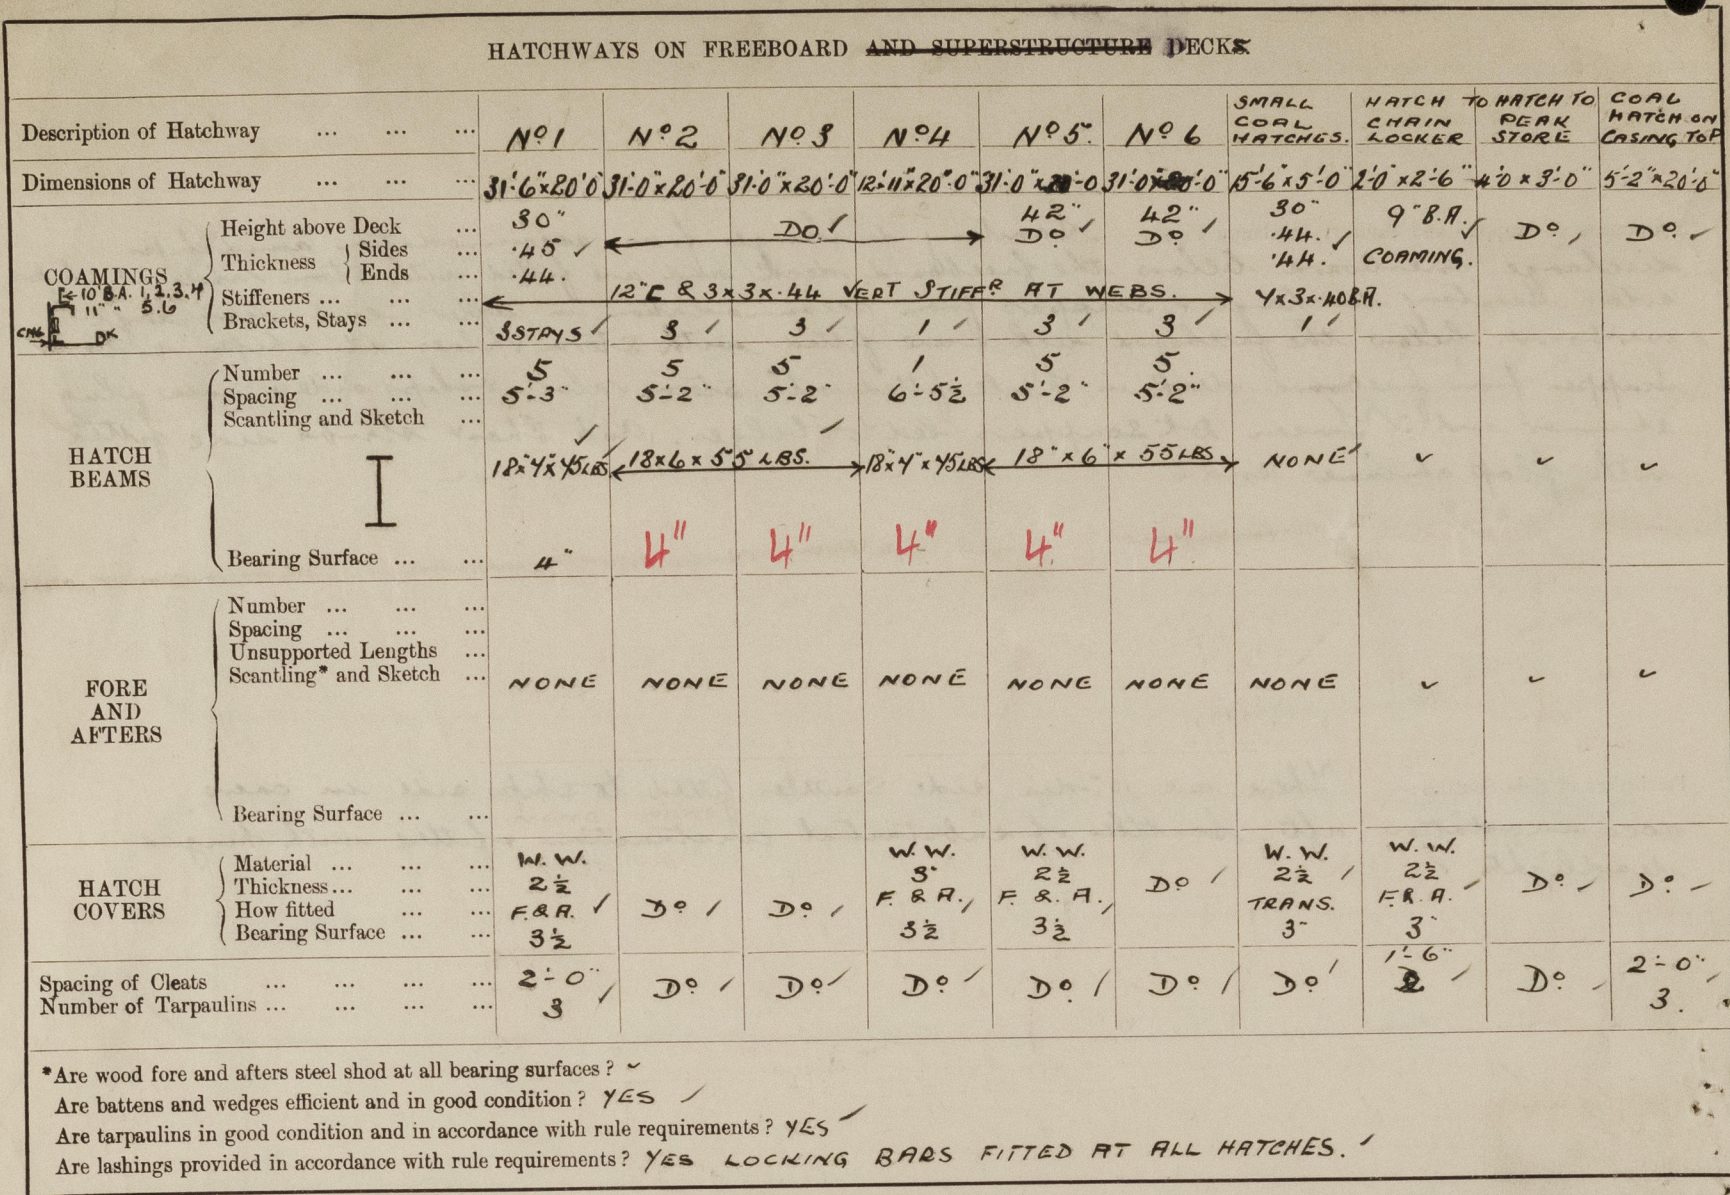 HATCHWAYS ON FREEBOARD AND SUPERSTRUCTURE DECKS.
Description of Hatchway ... ... ... Nº1 Nº2 Nº3 Nº4 Nº5. Nº6 SMALL COAL HATCHES. HATCH TO CHAIN LOCKER HATCH TO PEAK STORE COAL HATCH ON CASING TOP
Dimensions of Hatchway ... ... ... 31'-6"x20'0" 31'-0"x20'-0" 31'-0"x20'-0" 12'-11"x20'-0" 31'-0"x20'-0 31'-0x20'-0" 15'-6"x5'-0" 2'-0"x2'-6" 4'-0x3'-0" 5'-2"x20'-0"
COAMINGS
Height above Deck ... 30" Dº ✓ 42" ✓ 42" ✓ 30" 9" B.A. ✓ Dº ✓ Dº ✓
Thickness { Sides ... .45 ✓ Dº Dº .44. ✓ COAMING.
Ends ... .44. .44.
Stiffeners ... ... ... 12"C & 3x3x.44 VERT STIFFR AT WEBS. 4x3x.40B.A.
Brackets, Stays ... ... 3 STAYS ✓ 3 ✓ 3 ✓ 1 ✓ 3 ✓ 3 ✓ 1 ✓
10"B.A. 1, 2, 3, 4
11" " 5.6
CMG
DK
HATCH BEAMS
Number ... ... ... 5 5 5 1 5 5.
Spacing ... ... ... 5'-3" 5'-2" 5'-2" 6'-5½ 5'-2" 5'-2"
Scantling and Sketch ... ✓ ✓
18"x4"x45LBS. 18x6x55LBS. 18"x4"x45LBS 18"x6"x55LBS NONE ✓ ✓ ✓
Bearing Surface ... ... 4" 4" 4" 4" 4" 4"
FORE AND AFTERS
Number ... ... ...
Spacing ... ... ...
Unsupported Lengths ...
Scantling* and Sketch ... NONE NONE NONE NONE NONE NONE NONE ✓ ✓ ✓
Bearing Surface ... ...
HATCH COVERS
Material ... ... ... W.W. W.W. W.W. W.W. W.W.
Thickness ... ... ... 2½ 3" 2½ Dº ✓ 2½ ✓ 2½ Dº ✓ Dº ✓
How fitted ... ... F.&A. ✓ Dº ✓ Dº ✓ F.&A. ✓ F.&A. ✓ TRANS. F.&A. ✓
Bearing Surface ... ... 3½ 3½ 3½ 3" 3"
Spacing of Cleats ... ... ... ... 2'-0" Dº ✓ Dº ✓ Dº ✓ Dº. ✓ Dº ✓ Dº ✓ 1'-6" ✓ Dº ✓ 2'-0" ✓
Number of Tarpaulins ... ... ... ... 3 ✓ 2 3.
*Are wood fore and afters steel shod at all bearing surfaces? ✓
Are battens and wedges efficient and in good condition? YES ✓
Are tarpaulins in good condition and in accordance with rule requirements? YES ✓
Are lashings provided in accordance with rule requirements? YES LOCKING BARS FITTED AT ALL HATCHES. ✓